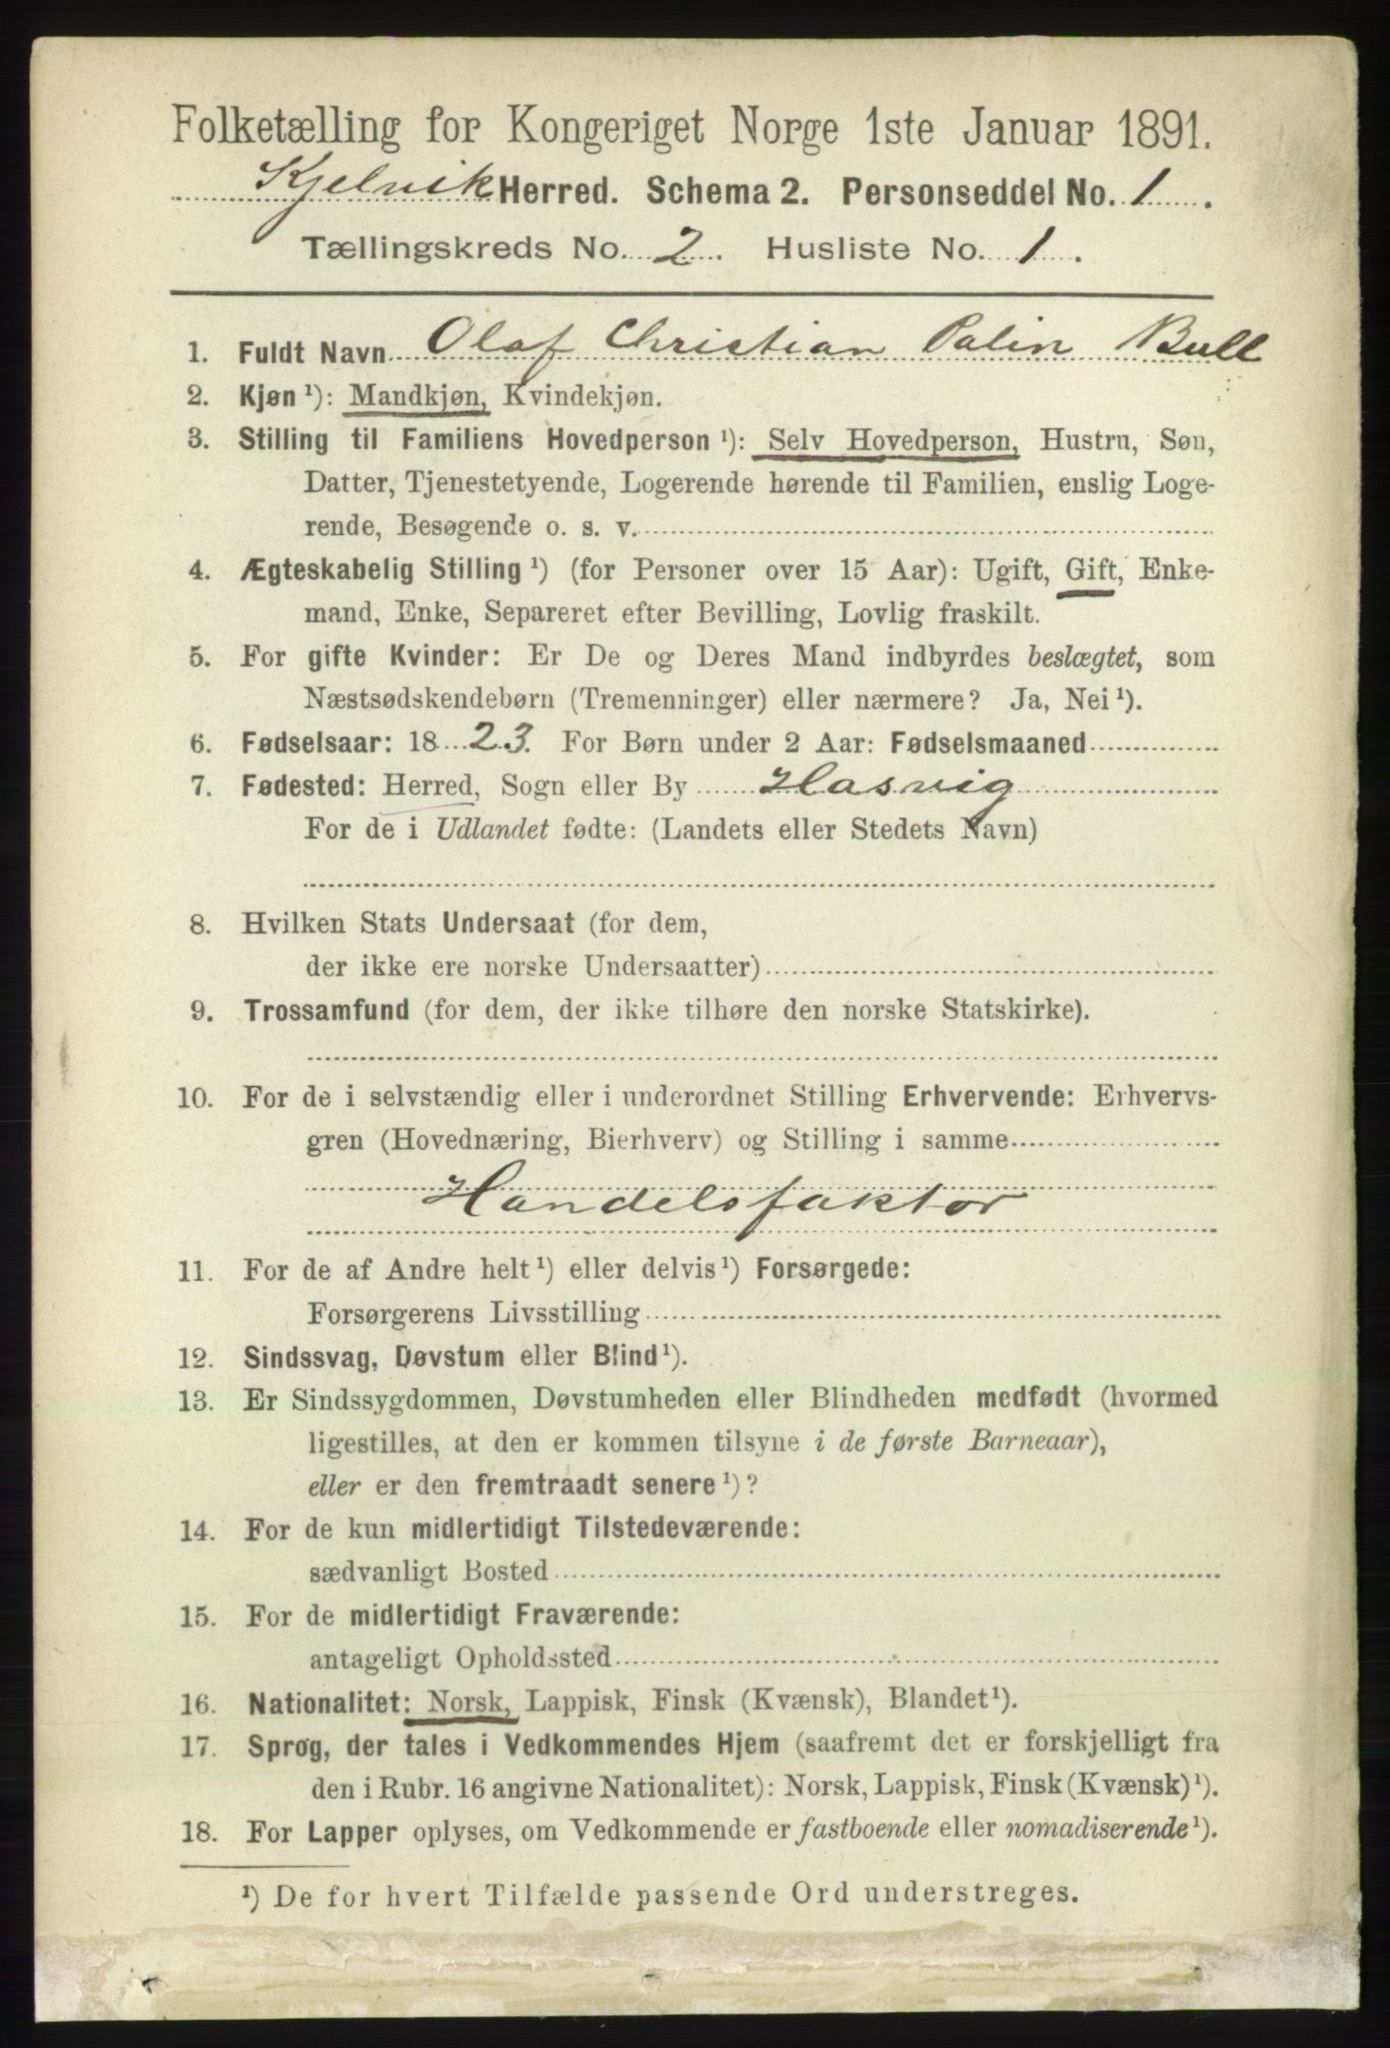 Folketælling for Kongeriget Norge 1ste Januar 1891.
Kjelvik Herred. Schema 2. Personseddel No. 1.
Tællingskreds No. 2. Husliste No. 1.
1. Fuldt Navn Olaf Christian Palin Bull
2. Kjøn ¹): Mandkjøn, Kvindekjøn.
3. Stilling til Familiens Hovedperson ¹): Selv Hovedperson, Hustru, Søn,
Datter, Tjenestetyende, Logerende hørende til Familien, enslig Loge-
rende, Besøgende o. s. v.
4. Ægteskabelig Stilling ¹) (for Personer over 15 Aar): Ugift, Gift, Enke-
mand, Enke, Separeret efter Bevilling, Lovlig fraskilt.
5. For gifte Kvinder: Er De og Deres Mand indbyrdes beslægtet, som
Næstsødskendebørn (Tremenninger) eller nærmere? Ja, Nei ¹).
6. Fødselsaar: 1823. For Børn under 2 Aar: Fødselsmaaned
7. Fødested: Herred, Sogn eller By Hasvig
For de i Udlandet fødte: (Landets eller Stedets Navn)
8. Hvilken Stats Undersaat (for dem,
der ikke ere norske Undersaatter)
9. Trossamfund (for dem, der ikke tilhøre den norske Statskirke).
10. For de i selvstændig eller i underordnet Stilling Erhvervende: Erhvervs-
gren (Hovednæring, Bierhverv) og Stilling i samme
Handelsfaktor
11. For de af Andre helt ¹) eller delvis ¹) Forsørgede:
Forsørgerens Livsstilling
12. Sindssvag, Døvstum eller Blind ¹).
13. Er Sindssygdommen, Døvstumheden eller Blindheden medfødt (hvormed
ligestilles, at den er kommen tilsyne i de første Barneaar),
eller er den fremtraadt senere ¹)?
14. For de kun midlertidigt Tilstedeværende:
sædvanligt Bosted
15. For de midlertidigt Fraværende:
antageligt Opholdssted
16. Nationalitet: Norsk, Lappisk, Finsk (Kvænsk), Blandet ¹).
17. Sprog, der tales i Vedkommendes Hjem (saafremt det er forskjelligt fra
den i Rubr. 16 angivne Nationalitet): Norsk, Lappisk, Finsk (Kvænsk) ¹).
18. For Lapper oplyses, om Vedkommende er fastboende eller nomadiserende ¹).
¹) De for hvert Tilfælde passende Ord understreges.